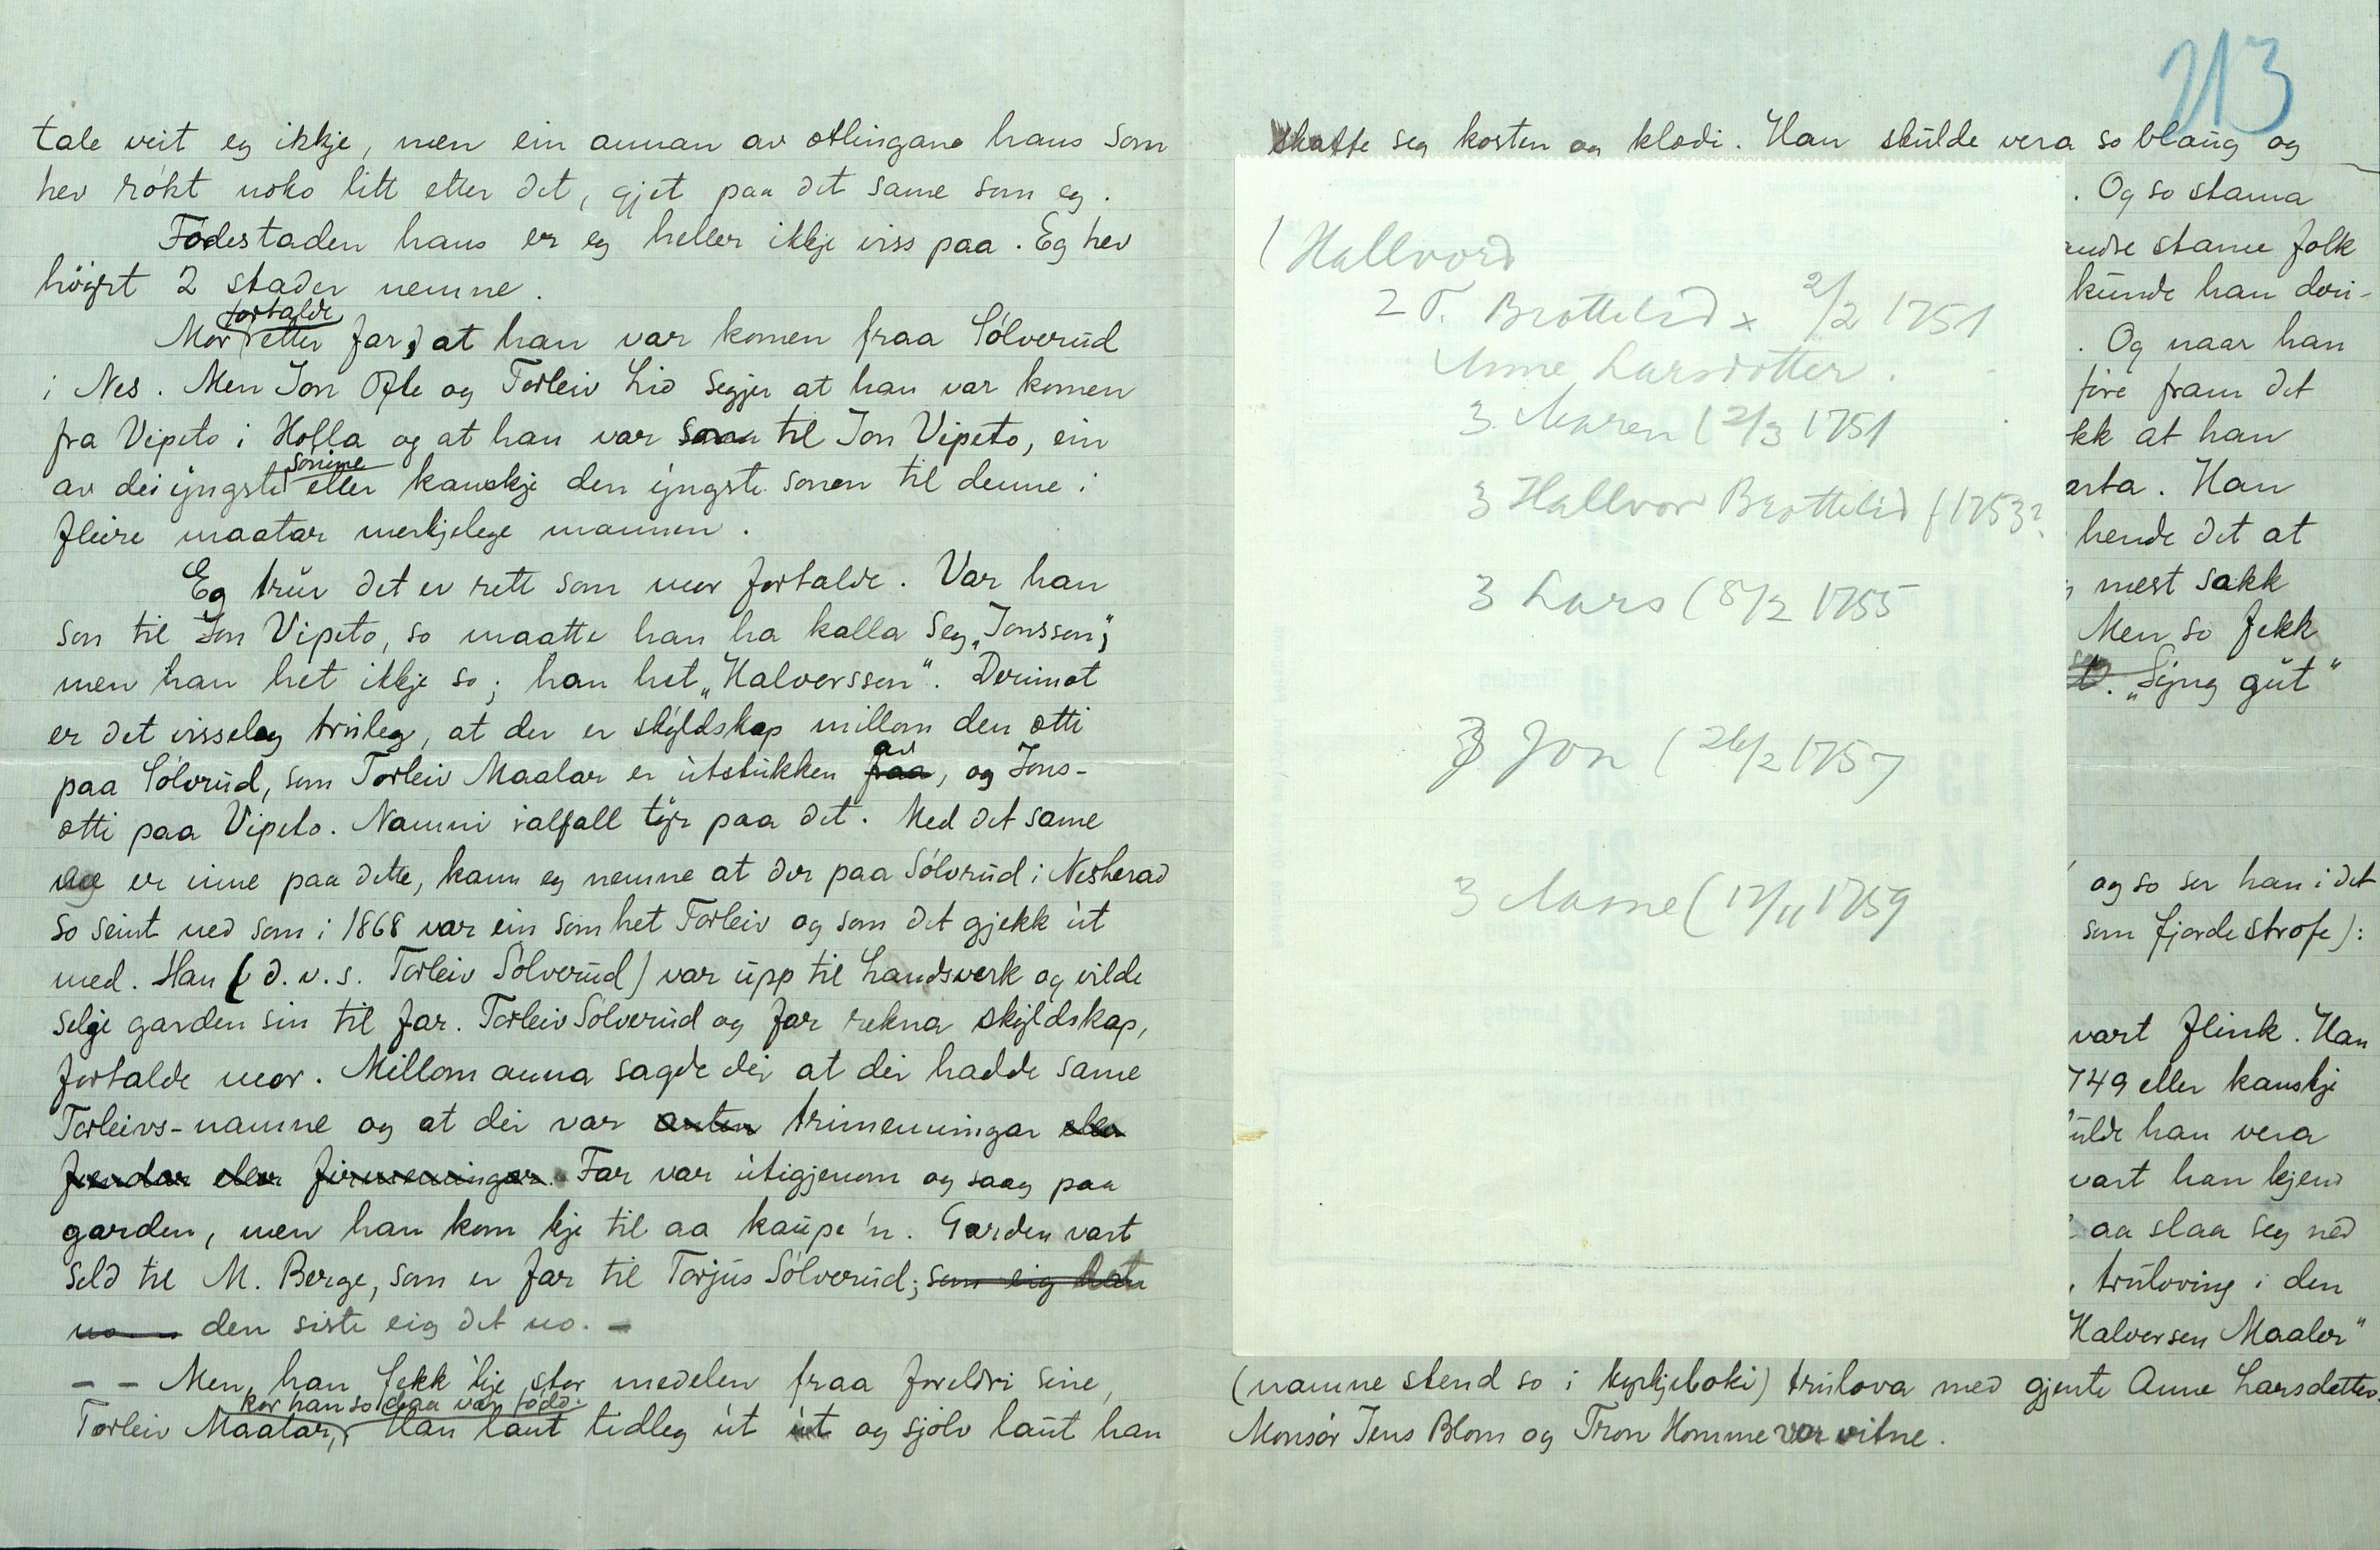 tale veit eg ikkje, men ein annan av ætlingane hans som
hev rókt noko litt etter det, gjet paa det same som eg.
Fødestaden hans er eg heller ikkje viss paa. Eg hev
höyrt 2 stader nemne.
fortalde
Mor etter far, at han var komen fraa Sólverud
i Nes. Men Jon Ofte og Torleiv Lid segjer at han var komen
fra Vipeto i Holla og at han var son til Jon Vipeto, ein
sonine
av dei yngste eller kanskje den yngste sonen til denne i
fleire maatar merkjelege mannen.
Eg trur det er rett som mor fortalde. Var han
son til Jon Vipeto, so maatte han ha kalla seg „Jonsson“,
men han het ikkje so; han het „Halversson“. Derimot
er det visseleg truleg, at der er skyldskap millom den ætti
av
paa Sólvrud, som Torleiv Maalar er utstukken fraa, og Jons-
ætti paa Vipeto. Namni ialfall tyr paa det. Med det same
eg er inne paa dette, kann eg nemne at der paa Sólvrud i Nesherad
so seint ned som i 1868 var ein som het Torleiv og som det gjekk ut
med. Han (d.v.s. Torleiv Sólverud) var upp til Landsverk og vilde
selje garden sin til far. Torleiv Sólverud og far rekna skyldskap,
fortalde mor. Millom anna sagde dei at dei hadde same
Torleivs-namne og at dei var anten trimenningar eller
frendar eller firmenningar. Far var utigjenom og saag paa
garden, men han kom kje til aa kaupe'n. Garden vart
seld til M. Berge, som er far til Torjus Sólverud; som eig den
no den siste eig det no. –
– – Men, han fekk 'kje stor medelen fraa foreldri sine,
kor han so daa var fódd.
Torleiv Maalar, Han laut tidleg ut ut og sjólv laut han
213
skaffe seg kosten og klædi. Han skulde vera so blaug og
. Og so stama
andre stame folk
kunde han deri-
. Og naar han
fóre fram det
kk at han
arta. Han
hende det at
mest sakk
Men so fekk
„Syng gut“
og so ser han i det
som fjorde strofe):
vart flink. Han
749 eller kanskje
ulde han vera
vart han kjend
aa slaa seg ned
, truloving i den
Halversen Maaler“
(namne stend so i kyrkjeboki) trulova med gjente Anne Larsdatter.
Monsór Jens Blom og Tron Homme var vitne.
1 Hallvord
2 T. Brottelid x 2/2 1751
Anne Larsdotter.
3. Maren (2/3 1751
3 Hallvor Brottelid f 1753?
3 Lars (8/2 1755
3 Jon (26/2 1757
3 Aasne (17/11 1759